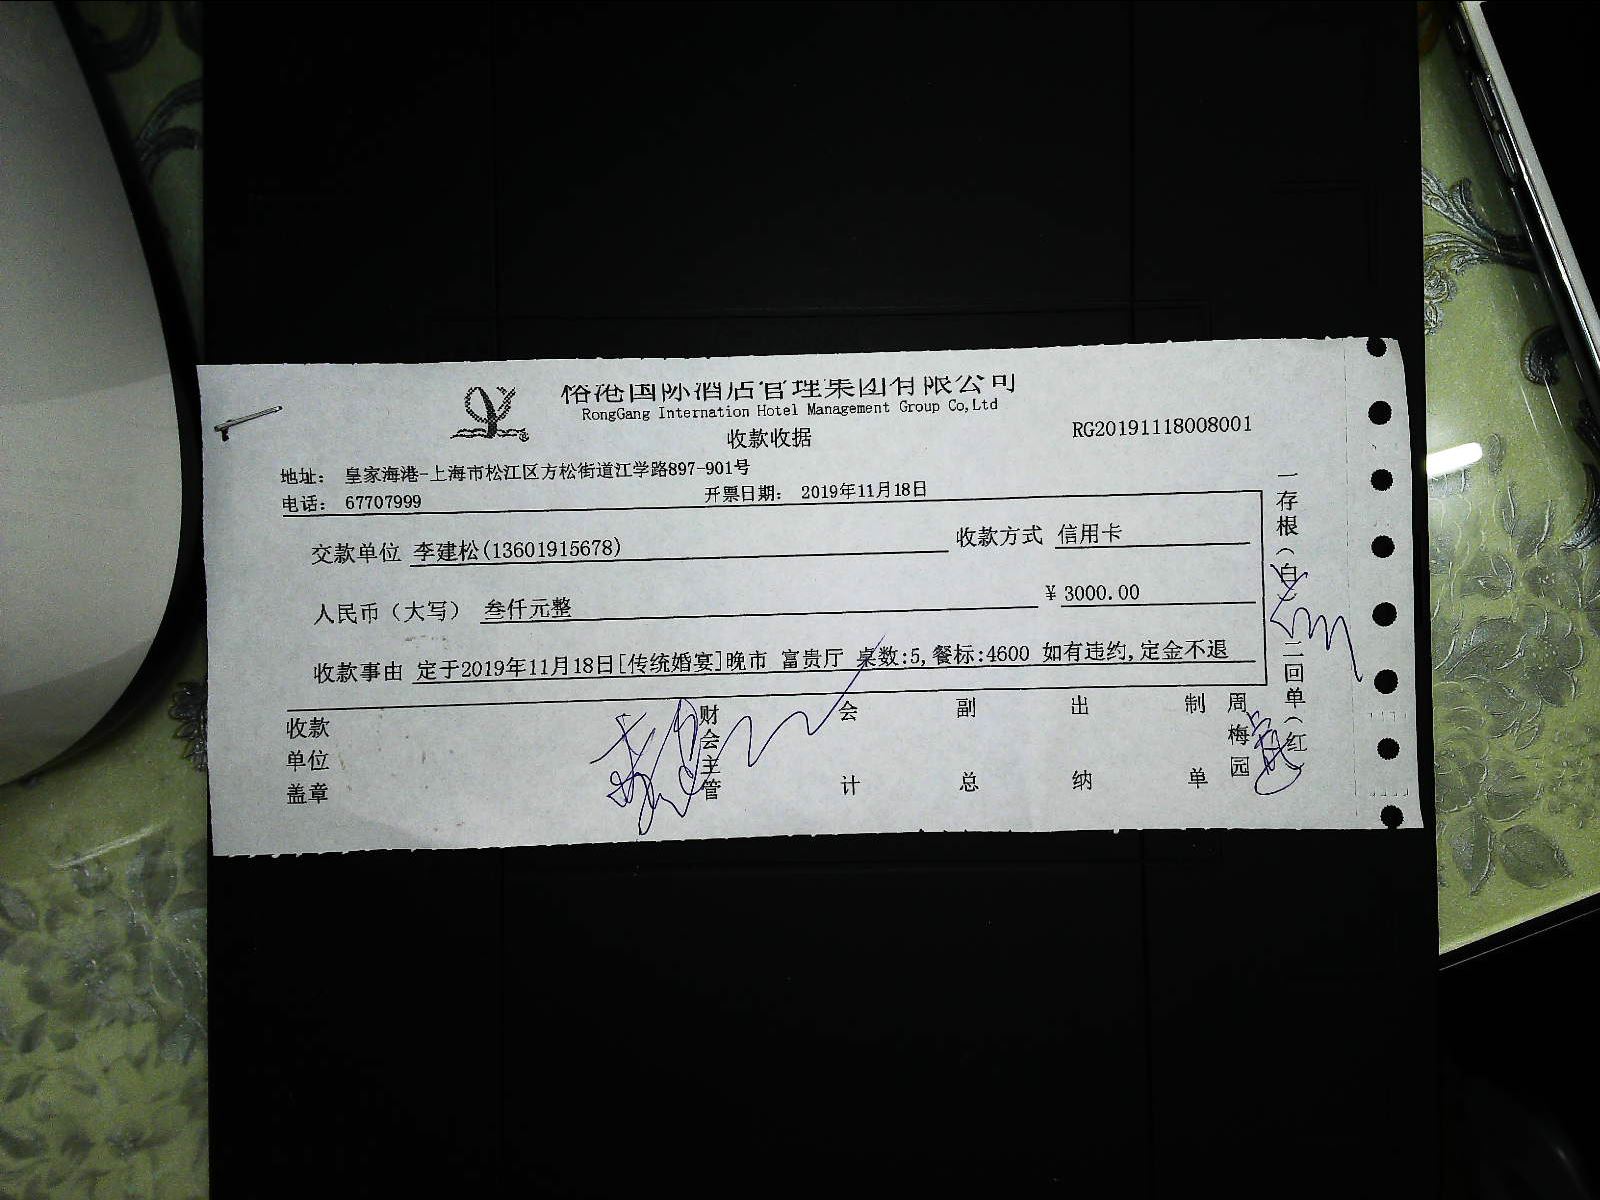 榕港国际酒店管理集团有限公司
RongGang Internation Hotel Management Group Co,Ltd
收款收据
RG20191118008001
地址: 皇家海港-上海市松江区方松街道江学路897-901号
电话: 67707999 开票日期: 2019年11月18日
交款单位 李建松(13601915678) 收款方式 信用卡
人民币(大写) 叁仟元整 ¥3000.00
收款事由 定于2019年11月18日[传统婚宴]晚市 富贵厅 桌数:5,餐标:4600 如有违约,定金不退
收款单位盖章 财会主管 会计 副总 出纳 制单 周梅园
一存根(白) 二回单(红)